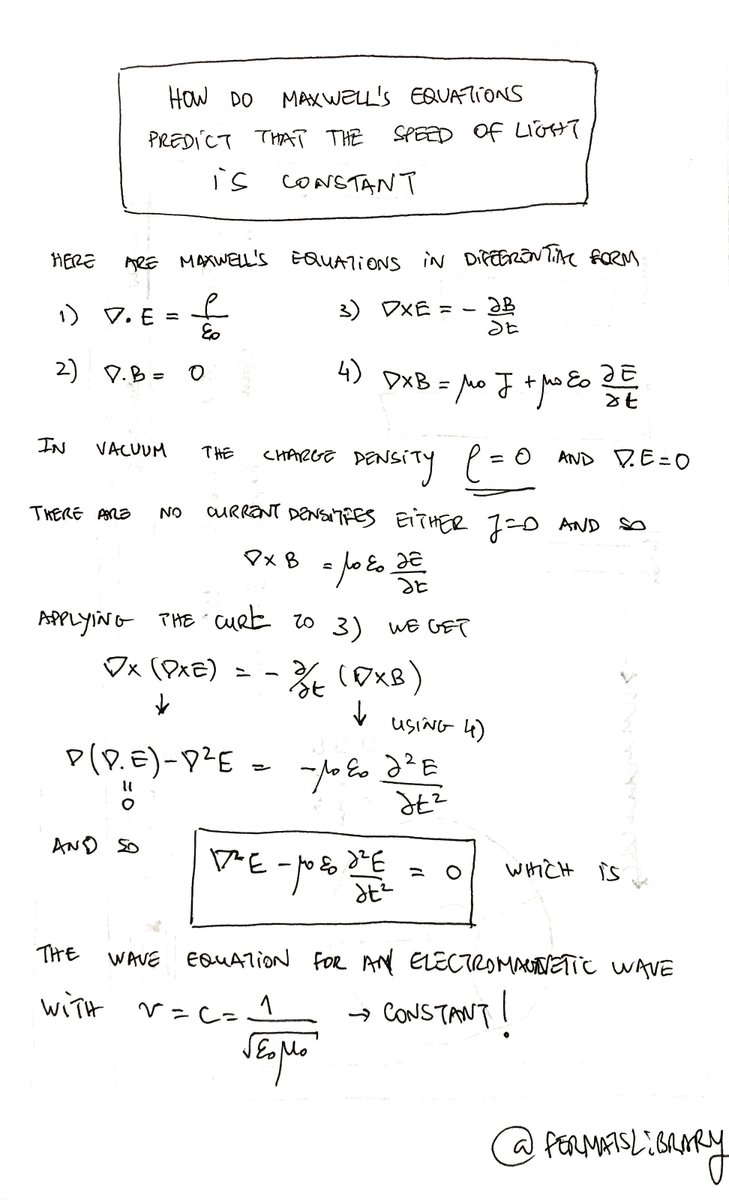 HOW DO MAXWELL'S EQUATIONS
PREDICT THAT THE SPEED OF LIGHT
IS CONSTANT
HERE ARE MAXWELL'S EQUATIONS IN DIFFERENTIAL FORM
1) ∇.E = ρ/ε₀ 3) ∇×E = - ∂B/∂t
2) ∇.B = 0 4) ∇×B = μ₀ J + μ₀ ε₀ ∂E/∂t
IN VACUUM THE CHARGE DENSITY ρ = 0 AND ∇.E=0
THERE ARE NO CURRENT DENSITIES EITHER J=0 AND SO
∇×B = μ₀ ε₀ ∂E/∂t
APPLYING THE CURL TO 3) WE GET
∇×(∇×E) = - ∂/∂t (∇×B)
↓ ↓ USING 4)
∇(∇.E)-∇²E = -μ₀ ε₀ ∂²E/∂t²
"
0
AND SO ∇²E - μ₀ ε₀ ∂²E/∂t² = 0 WHICH IS
THE WAVE EQUATION FOR AN ELECTROMAGNETIC WAVE
WITH v = c = 1/√ε₀μ₀ → CONSTANT!
@FERMATSLIBRARY